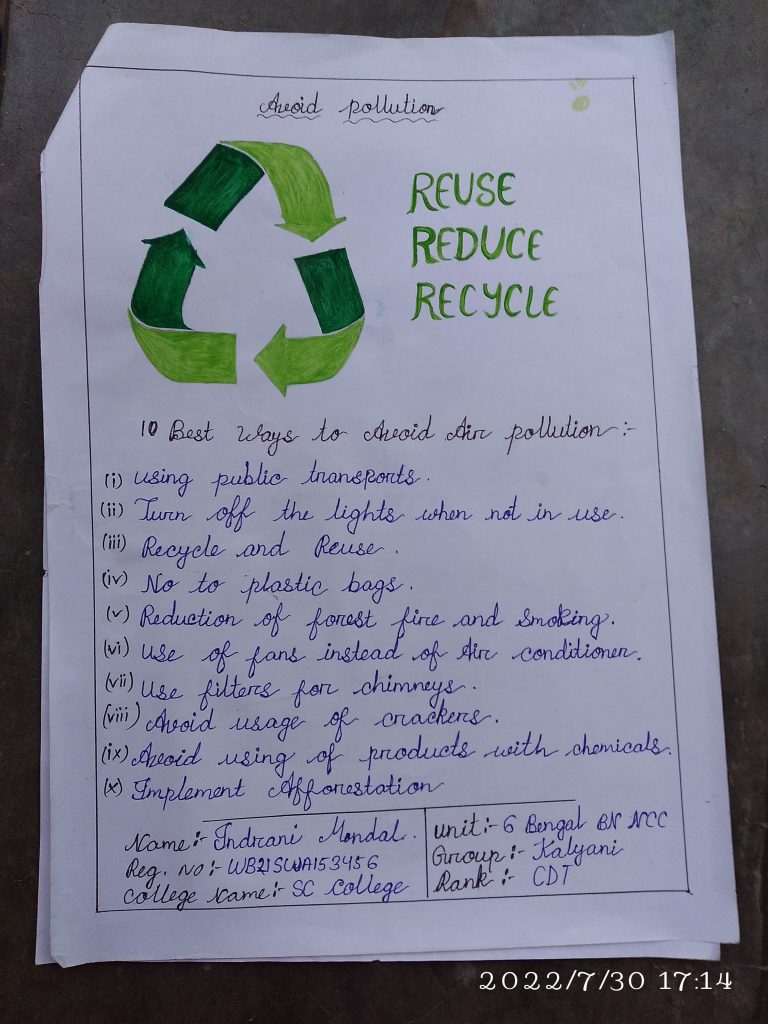 Avoid pollution
REUSE
REDUCE
RECYCLE
10 Best Ways to Avoid Air pollution:-
(i) using public transports.
(ii) Turn off the lights when not in use.
(iii) Recycle and Reuse.
(iv) No to plastic bags.
(v) Reduction of forest fire and smoking.
(vi) Use of fans instead of Air conditioner.
(vii) Use filters for chimneys.
(viii) Avoid usage of crackers.
(ix) Avoid using of products with chemicals.
(x) Implement Afforestation
Name:- Indrani Mondal.
Reg. No:- WB21SWA153456
College Name:- SC College
Unit:- 6 Bengal BN NCC
Group:- Kalyani
Rank:- CDT
2022/7/30 17:14